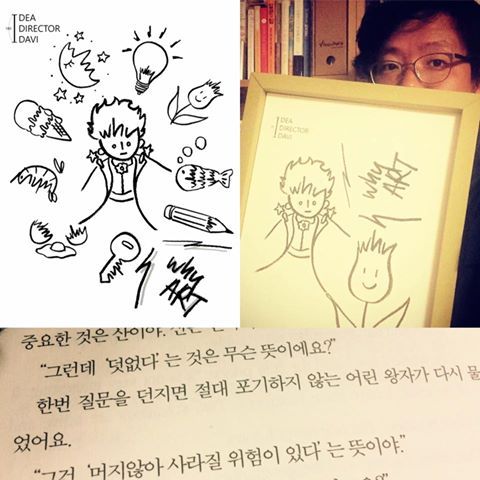 IDEA
DIRECTOR
DAVI
why
ART
IDEA
DIRECTOR
DAVI
why
ART
중요한 것은 산이야.
"그런데 '덧없다'는 것은 무슨 뜻이에요?"
한번 질문을 던지면 절대 포기하지 않는 어린 왕자가 다시 물
었어요.
"그건 '머지않아 사라질 위험이 있다'는 뜻이야."